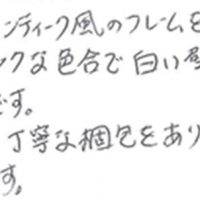 ンティーク風のフレームを
ックな色合で白い
です。
丁寧な梱包をあり
す。